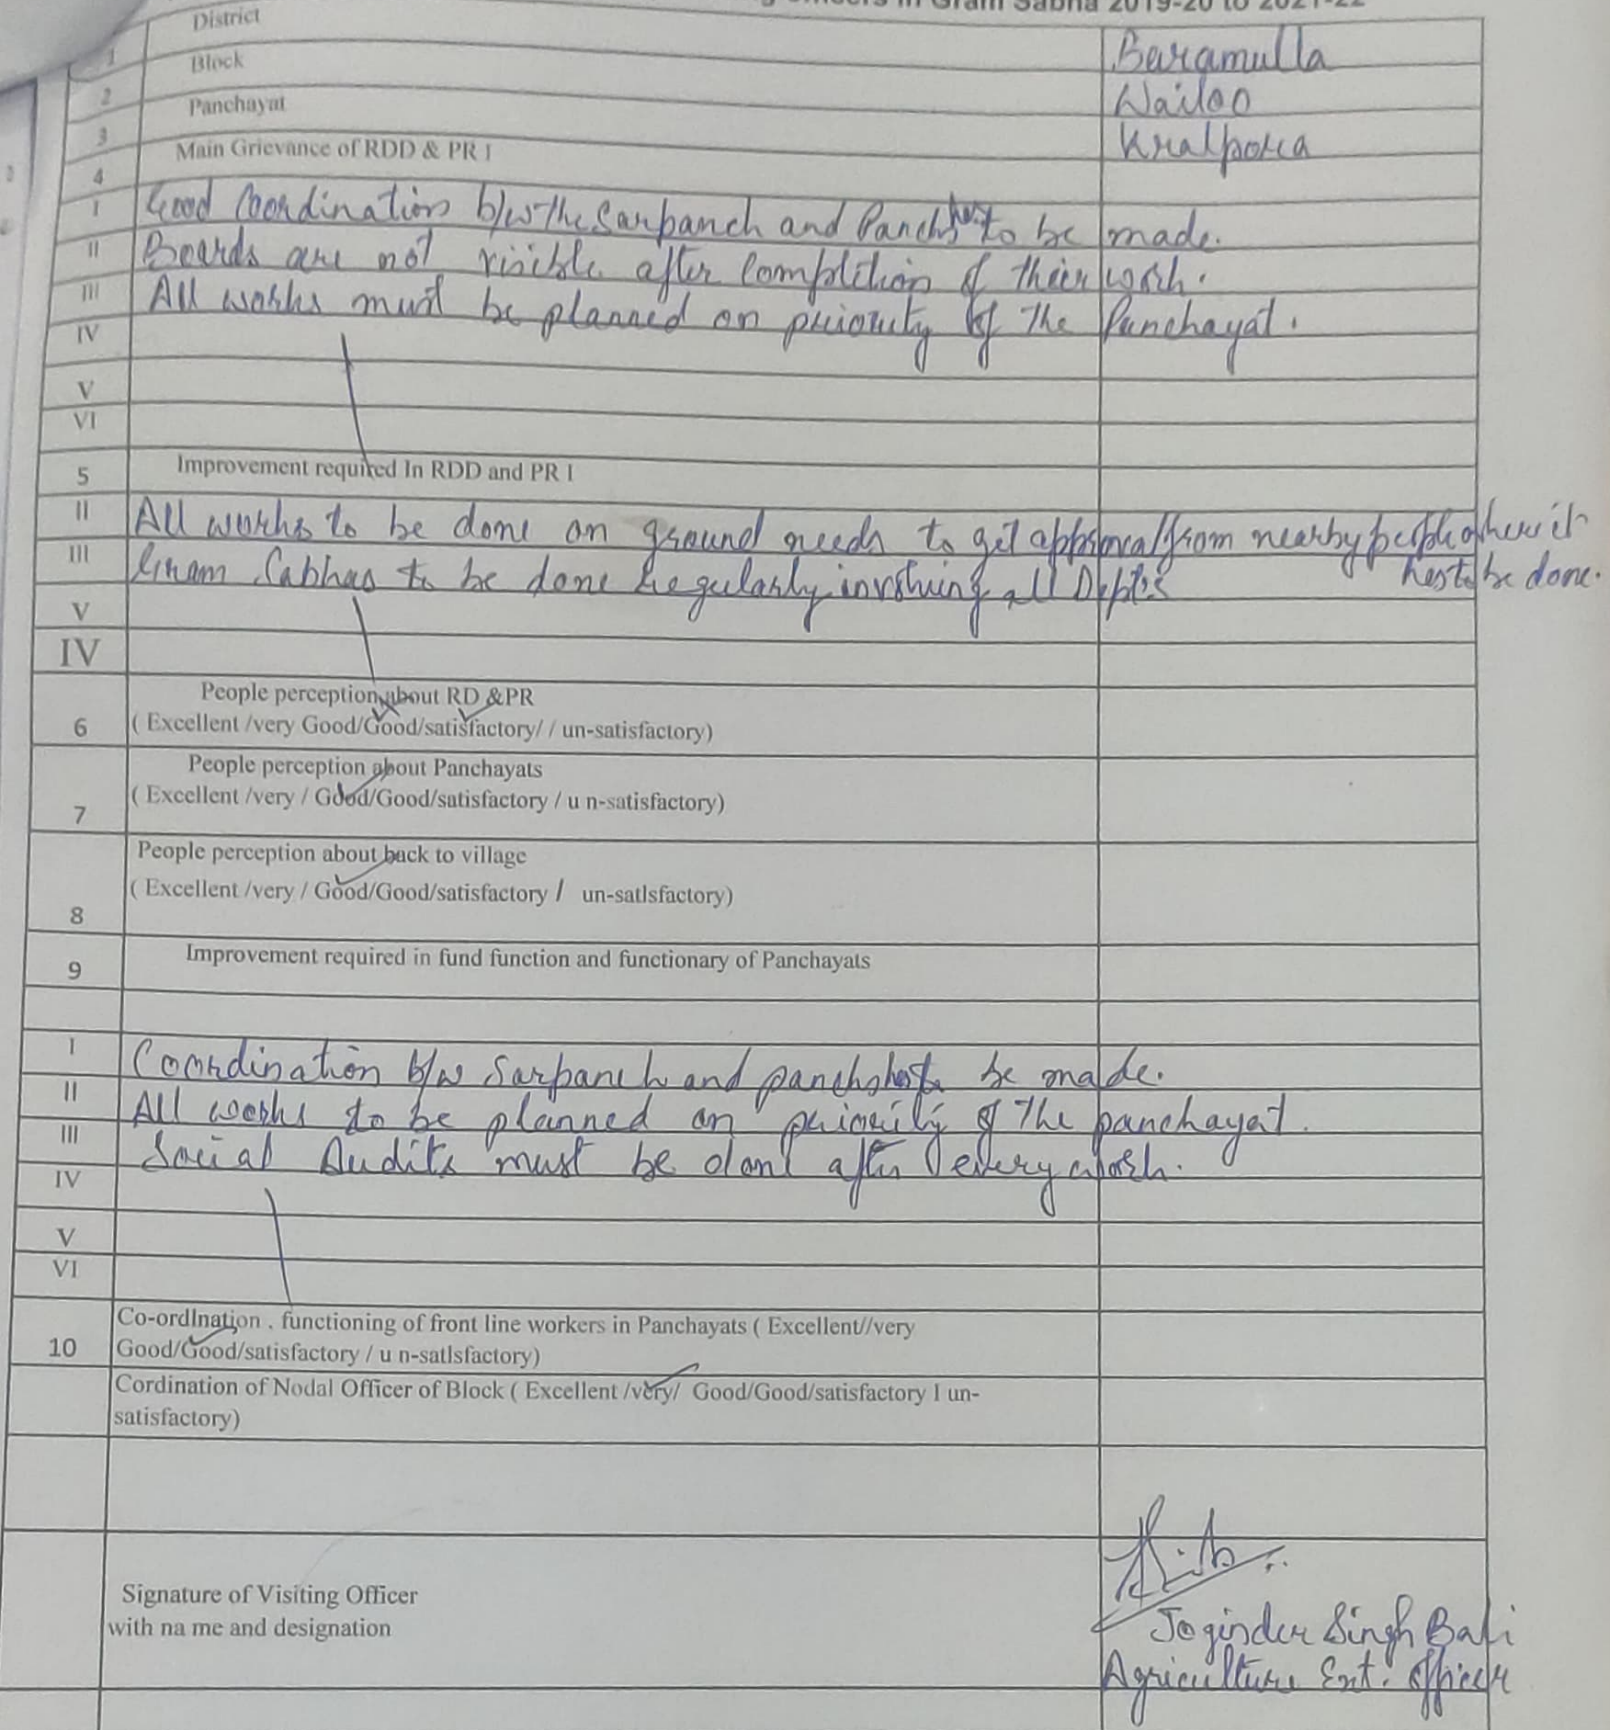 Officers in Gram Sabha 2019-20 to 2021-22
1 District Baramulla
2 Block Wailoo
3 Panchayat Kralpora
4 Main Grievance of RDD & PR I
I Good Coordination b/w the Sarpanch and Panchs has to be made.
II Boards are not visible after Complition of their work.
III All works must be planned on priority of the Panchayat.
IV
V
VI
5 Improvement required In RDD and PR I
II All works to be done on ground needs to get approval from nearby people where it
has to be done.
III Gram Sabhas to be done Regularly involving all Deptts
V
IV
6 People perception about RD &PR
( Excellent /very Good/Good/satisfactory/ / un-satisfactory)
7 People perception about Panchayats
( Excellent /very / Good/Good/satisfactory / u n-satisfactory)
8 People perception about back to village
( Excellent /very / Good/Good/satisfactory / un-satlsfactory)
9 Improvement required in fund function and functionary of Panchayats
I Coordination b/w Sarpanch and panchs has to be made.
II All works to be planned on priority of the panchayat.
III Social Audits must be done after every work.
IV
V
VI
10 Co-ordlnation . functioning of front line workers in Panchayats ( Excellent//very
Good/Good/satisfactory / u n-satlsfactory)
Cordination of Nodal Officer of Block ( Excellent /very/ Good/Good/satisfactory I un-
satisfactory)
Signature of Visiting Officer
with na me and designation
Joginder Singh Bali
Agriculture Ext. Officer